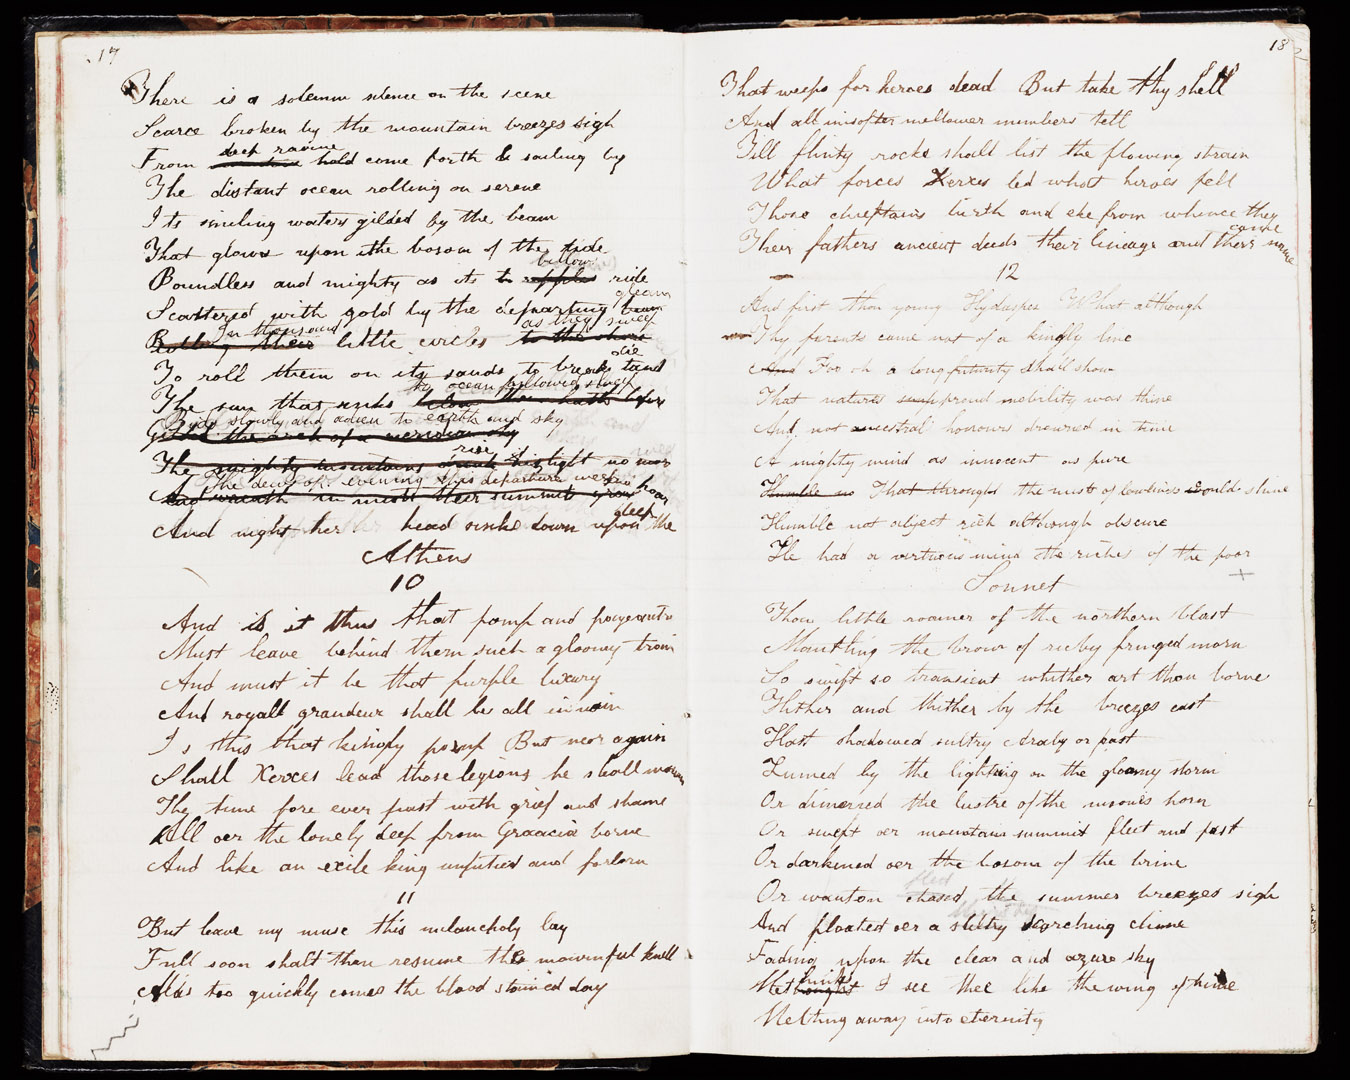 17
There is a solemn silence on the scene
Scarce broken by the mountain breezes sigh
deep ravine
From hold come forth & sailing by
The distant ocean rolling on serene
Its smiling waters gilded by the beam
That glows upon the bosom of the tide
billows
Boundless and mighty as its to ripples ride
gleam
Scattered with gold by the departing beam
In thousand as they sweep
Rolling their little circles to the shore
die
To roll them on its sands to break and
by ocean billowed sleep
The sun that sinks
Bids slowly and adieu to earth and sky
Gilded the arch of a meridian sky
rise
The mighty mountains his light no more
the dews of evening his departure weep
And wreath in mist their summits hoar
sleep
And night her head sinks down upon the
Athens
10
And is it thus that pomp and pageantry
Must leave behind them such a gloomy train
And must it be that purple luxury
And royall grandeur shall be all in vain
Is this that kingly pomp But neer again
Shall Xerxes lead those legions he shall mourn
Thy time fore ever past with grief and shame
All oer the lonely deep from Graacia borne
And like an exile king unpitied and forlorn
11
But leave my muse this melancholy lay
Full soon shalt thou resume the mournful knell
Alas too quickly comes the blood stained day
18
That weeps for heroes dead But take thy shell
And all in softer mellower numbers tell
Till flinty rocks shall list the flowing strain
What forces Xerxes led what heroes fell
Those chieftains birth and eke from whence they
came
Their fathers ancient deeds their lineage and their name
12
And first thou young Hydaspes What although
Thy parents came not of a kingly line
And For oh a long futurity shall show
That natures proud nobility was thine
And not ancestral honours drowned in time
A mighty mind as innocent as pure
Humble no That through the mist of lowliness would shine
Humble not abject rich although obscure
He had a virtuous mind the riches of the poor
Sonnet
Thou little roamer of the northern blast
Mantling the brow of ruby fringed morn
So swift so transient whither art thou borne
Hither and thither by the breezes cast
Hast shadowed sultry Araby or past
Lumed by the lightning on the gloomy storm
Or dimersed the lustre of the moons horn
Or swept oer mountain summit fleet and past
Or darkened oer the bosom of the brine
fleet
Or wanton chased the summer breezes sigh
And floated oer a sultry scorching clime
Fading upon the clear and azure sky
thinks
Methought I see thee like the wing of time
Melting away into eternity